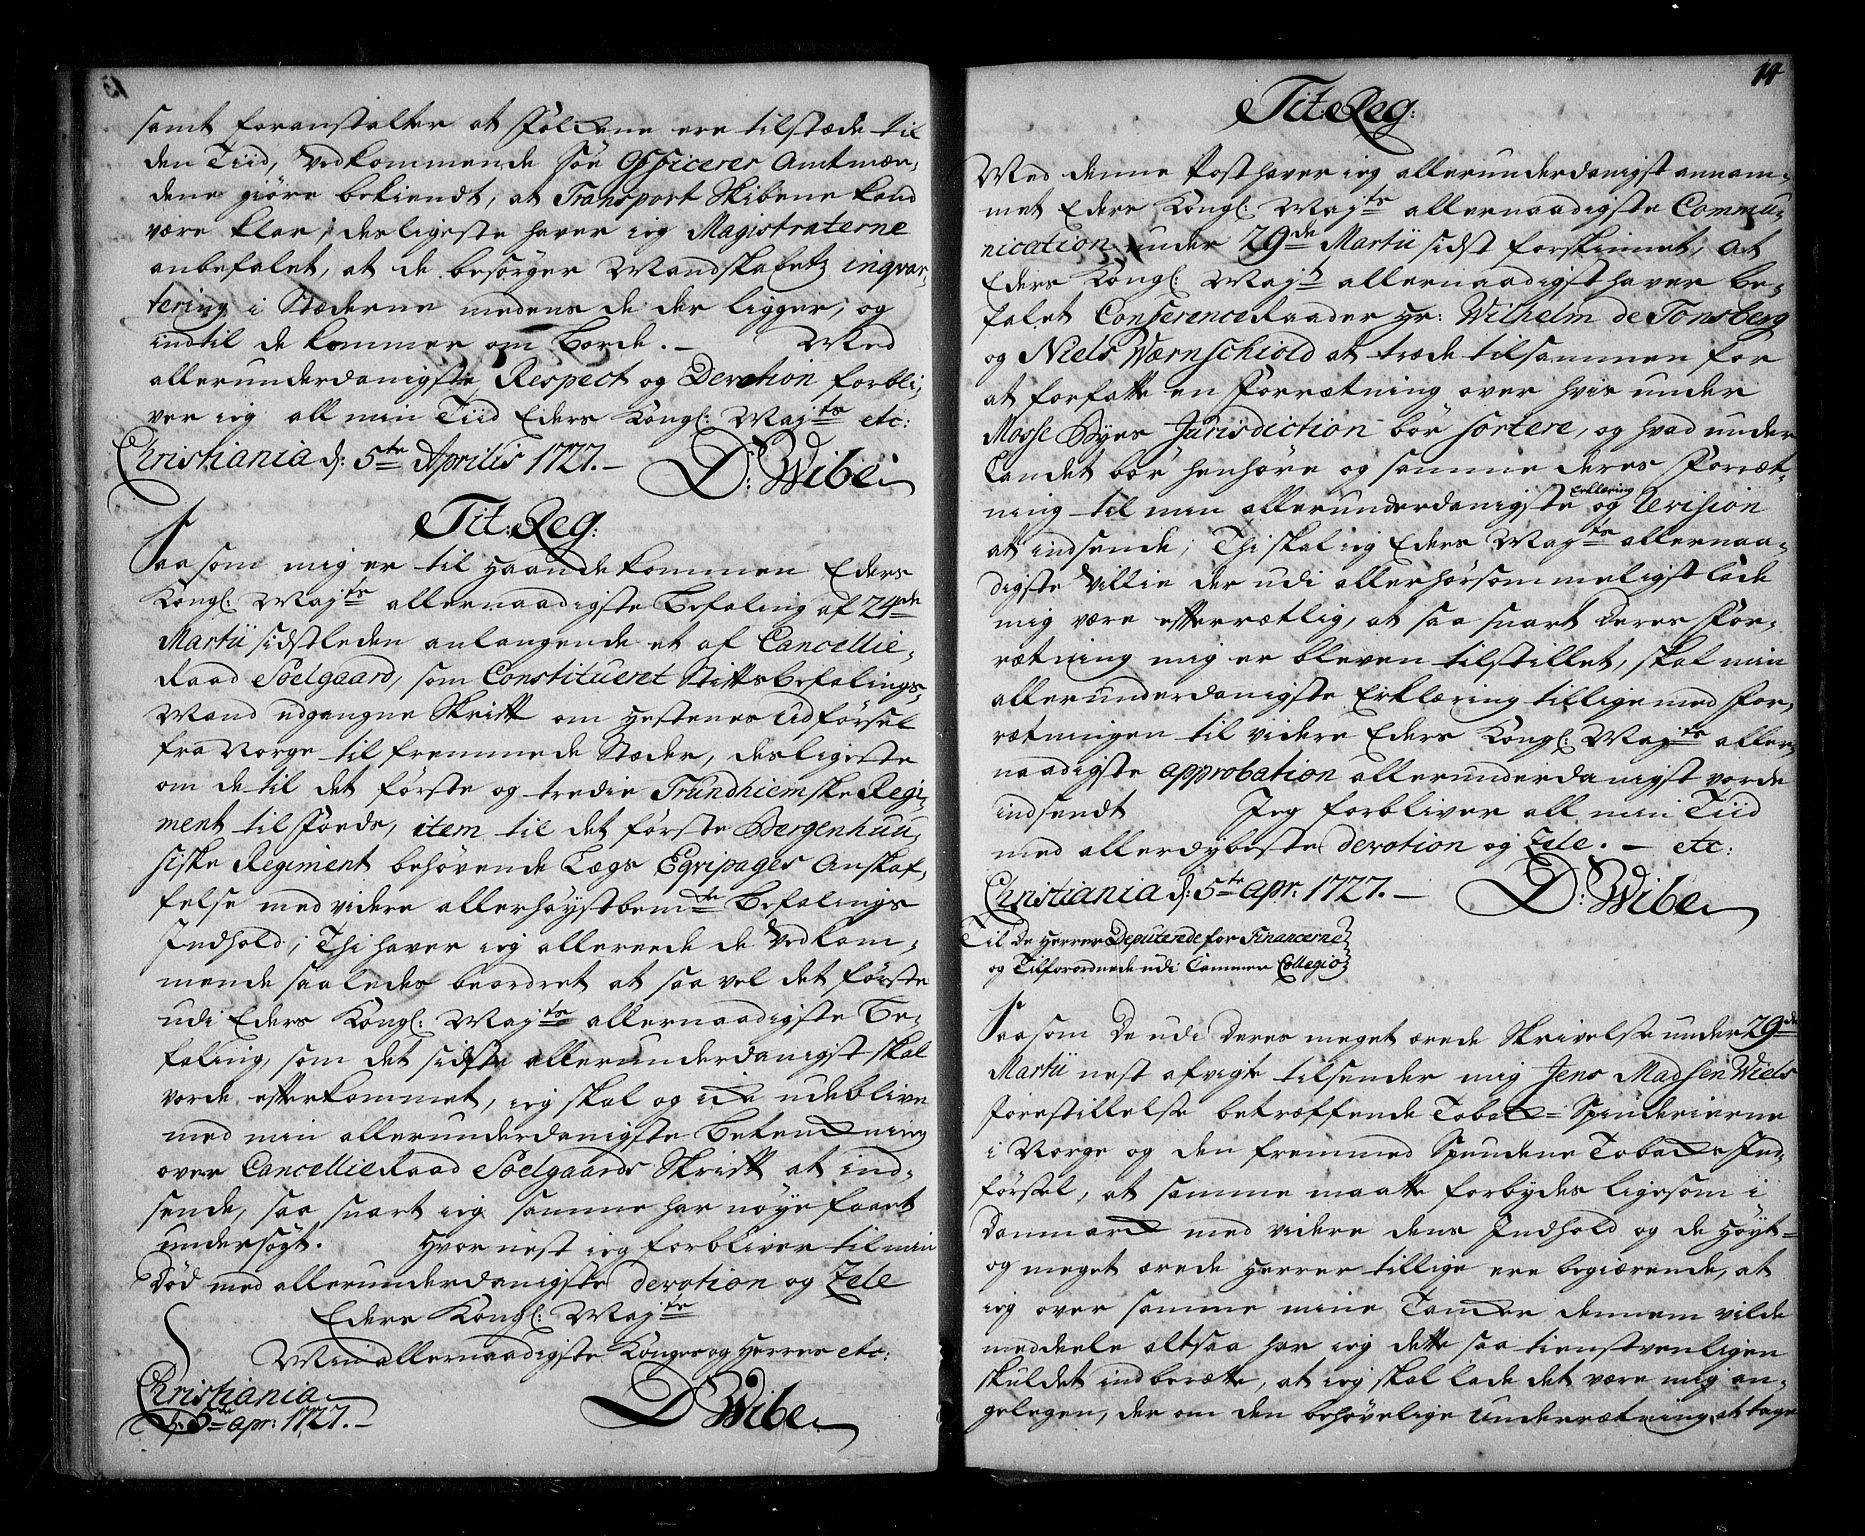 samt foranstalter at Folckene ere tilstæde til
den Tiid, Vedkommende Söe Officerer Amtmæn-
dene giöre bekiendt, at Transport Skibene kand
være klar, desligeste haver ieg Magistraterne
anbefalet, at de besörger Mandskabetz inqvar-
tering i Stæderne medens de der ligger, og
indtil de kommer om Borde. - Med
allerunderdanigste Respect og Devotion forbli-
ver ieg all min Tiid Eders Kongl: Majts etc:
Christiania d: 5te Aprilis 1727. - D: Wibe
Tit: Reg:
Saasom mig er til Haande kommen Eders
Kongl: Majts allernaadigste Befaling af 24de
Martii sidstleden anlangende et af Cancellie-
Raad Soelgaard, som Constitueret Stiftsbefalings-
Mand udgangne Skrift om Hestenes Udförsel
fra Norge til fremmede Stæder, desligeste
om de til det förste og tredie Trundhiemske Regi-
ment til Fods, item til det förste Bergenhuu-
siske Regiment behövende Lægs Eqvipages Anskaf-
felse med videre allerhöystbemte Befalings
Indhold; Thi haver ieg allerede de Vedkom-
mende saaledes beordret at saa vel det förste
udi Eders Kongl: Majts allernaadigste Be-
faling, som det sidste allerunderdanigst skal
vorde efterkommet, ieg skal og icke udeblive
med min allerunderdanigste Betenckning
over CancellieRaad Soelgaards Skrift at ind-
sende, saa snart ieg samme har nöye faaet
undersögt. Hvor nest ieg forbliver til min
Död med allerunderdanigste devotion og Zele
Eders Kongl: Majts
Min allernaadigste Konges og Herres etc:
Christiania
d: 5te apr: 1727. - D: Wibe
14
Tit: Reg:
Med denne Post haver ieg allerunderdanigst annam-
met Eders Kongl: Majts allernaadigste Commu-
nication under 29de Martii sidst forskinnet, at
Eders Kongl: Majts allernaadigst haver be-
falet ConferenceRaader Hr: Wilhelm de Tonsberg
og Niels Wærnschiold at træde tilsammen for
at forfatte en Forrætning over hvis under
Mosse Byes Jurisdiction bör sortere, og hvad under
Landet bör henhöre og samme deres Forræt-
ning til min allerunderdanigste Erklæring og Revision
at indsende; Thi skal ieg Eders Majts allernaa-
digste Villie der udi allerhörsommeligst lade
mig være efterrætlig, at saa snart deres For-
rætning mig er bleven tilstillet, skal min
allerunderdanigste Erklæring tillige med For-
rætningen til videre Eders Kongl: Majts aller-
naadigste approbation allerunderdanigst vorde
indsendt Jeg forbliver all min Tiid
med allerdybeste devotion og Zele. - etc:
Christiania d: 5te apr: 1727. - D: Wibe
Til De Herrer Deputerede for Financerne
og Tilforordnede udi Cammer Collegio
Saasom De udi Deres meget ærede Skrivelse under 29de
Martii nest afvigte tilsender mig Jens Madsen Wiels
forestillelse betreffende Toback-Spinderierne
i Norge og den fremmed Spundene Tobacks Ind-
försel, at samme maatte forbydes ligesom i
Danmarck med videre dens Indhold og de Höyt-
og meget ærede Herrer tillige ere begiærende, at
ieg over samme mine Tancker dennem vilde
meddeele altsaa har ieg dette saa tienstvenligen
skuldet indberætte, at ieg skal lade det være mig an-
gelegen, der om den behövelige Underrætning at tage